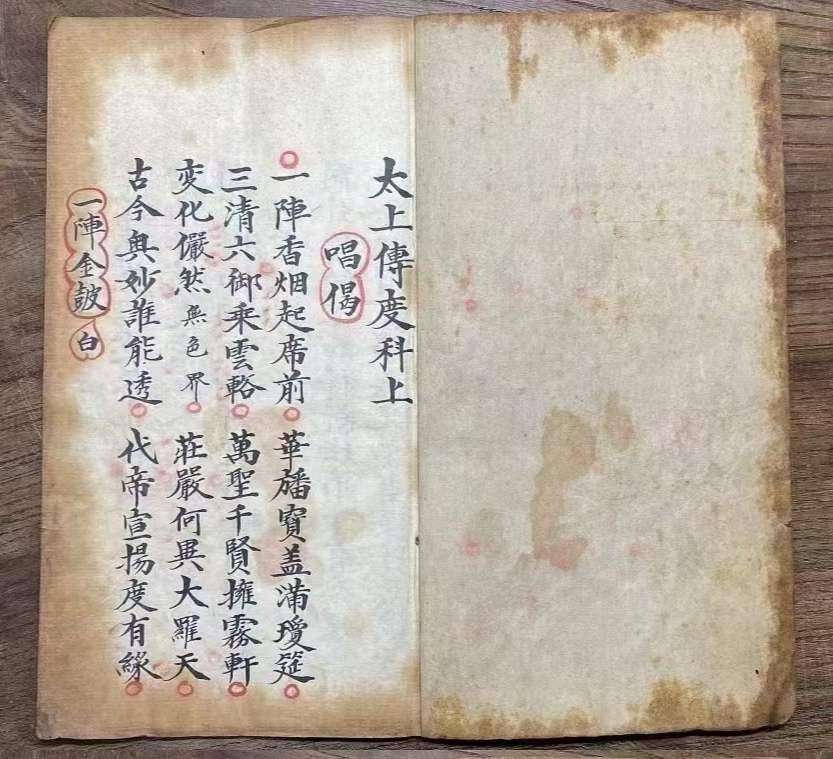 太上傳度科上
唱偈
一陣香烟起席前華旛寶盖滿瓊筵
三清六御乘雲輅萬聖千賢擁霧軒
变化儼然無色界莊嚴何異大羅天
古今奥妙誰能透代帝宣揚度有緣
一陣金鼓白